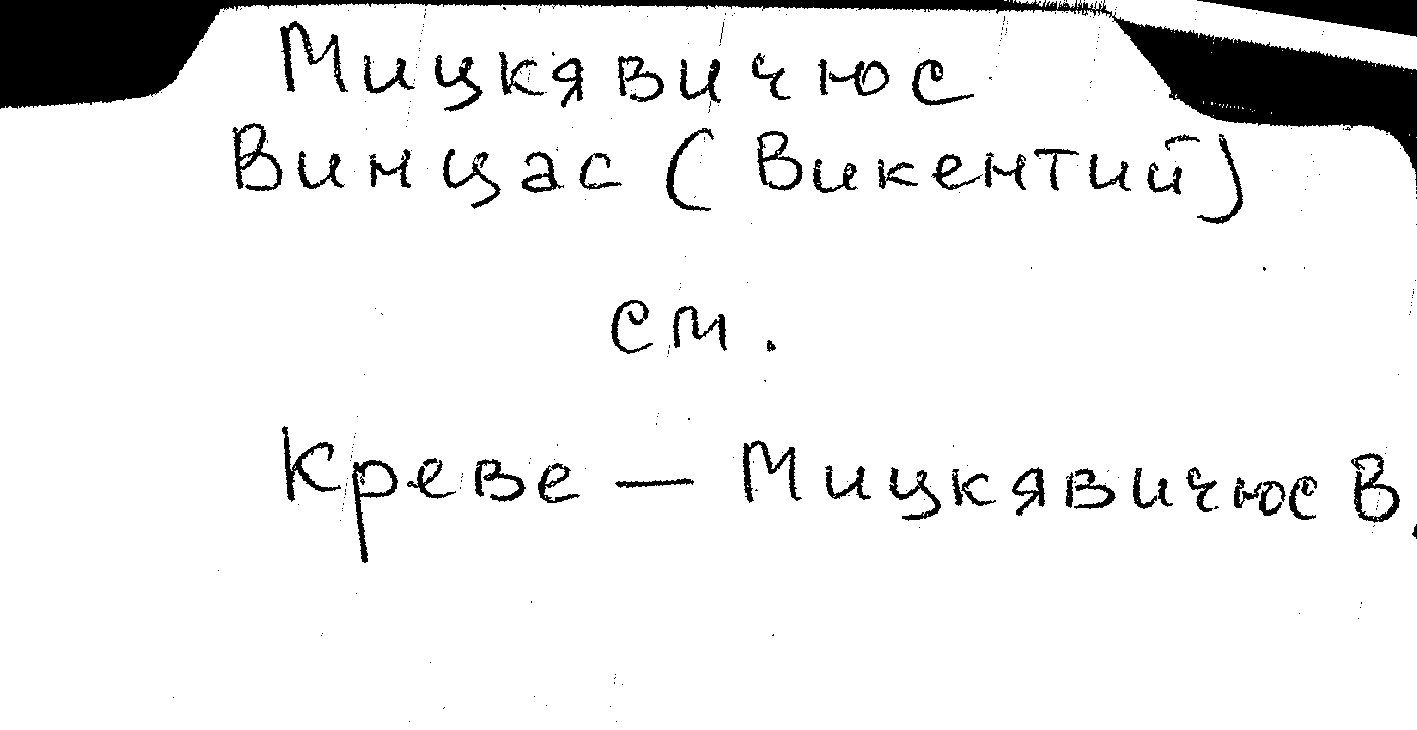 Мицкявичюс
Винцас (Викентий)
см.
Креве — Мицкявичюс В.